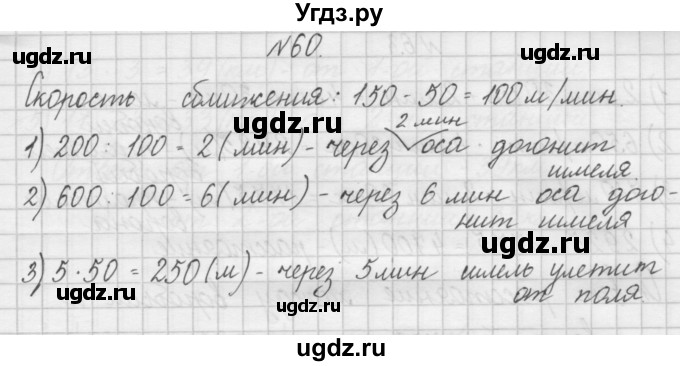 Угдз.ру
№60.
ugdz.ru ugdz.ru
Скорость сближения: 150 - 50 = 100 м/мин.
ugdz.ru
2 мин
1) 200 : 100 = 2 (мин) - через оса догонит
шмеля.
2) 600 : 100 = 6 (мин) - через 6 мин оса дого-
нит шмеля
ugdz.ru ugdz.ru
3) 5 · 50 = 250 (м) - через 5 мин шмель улетит
от поля.
ugdz.ru ugdz.ru
ugdz.ru
ugdz.ru